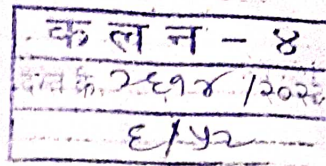 कलन - ४
दस्त क्र. २६१४ /२०२०
६/५२